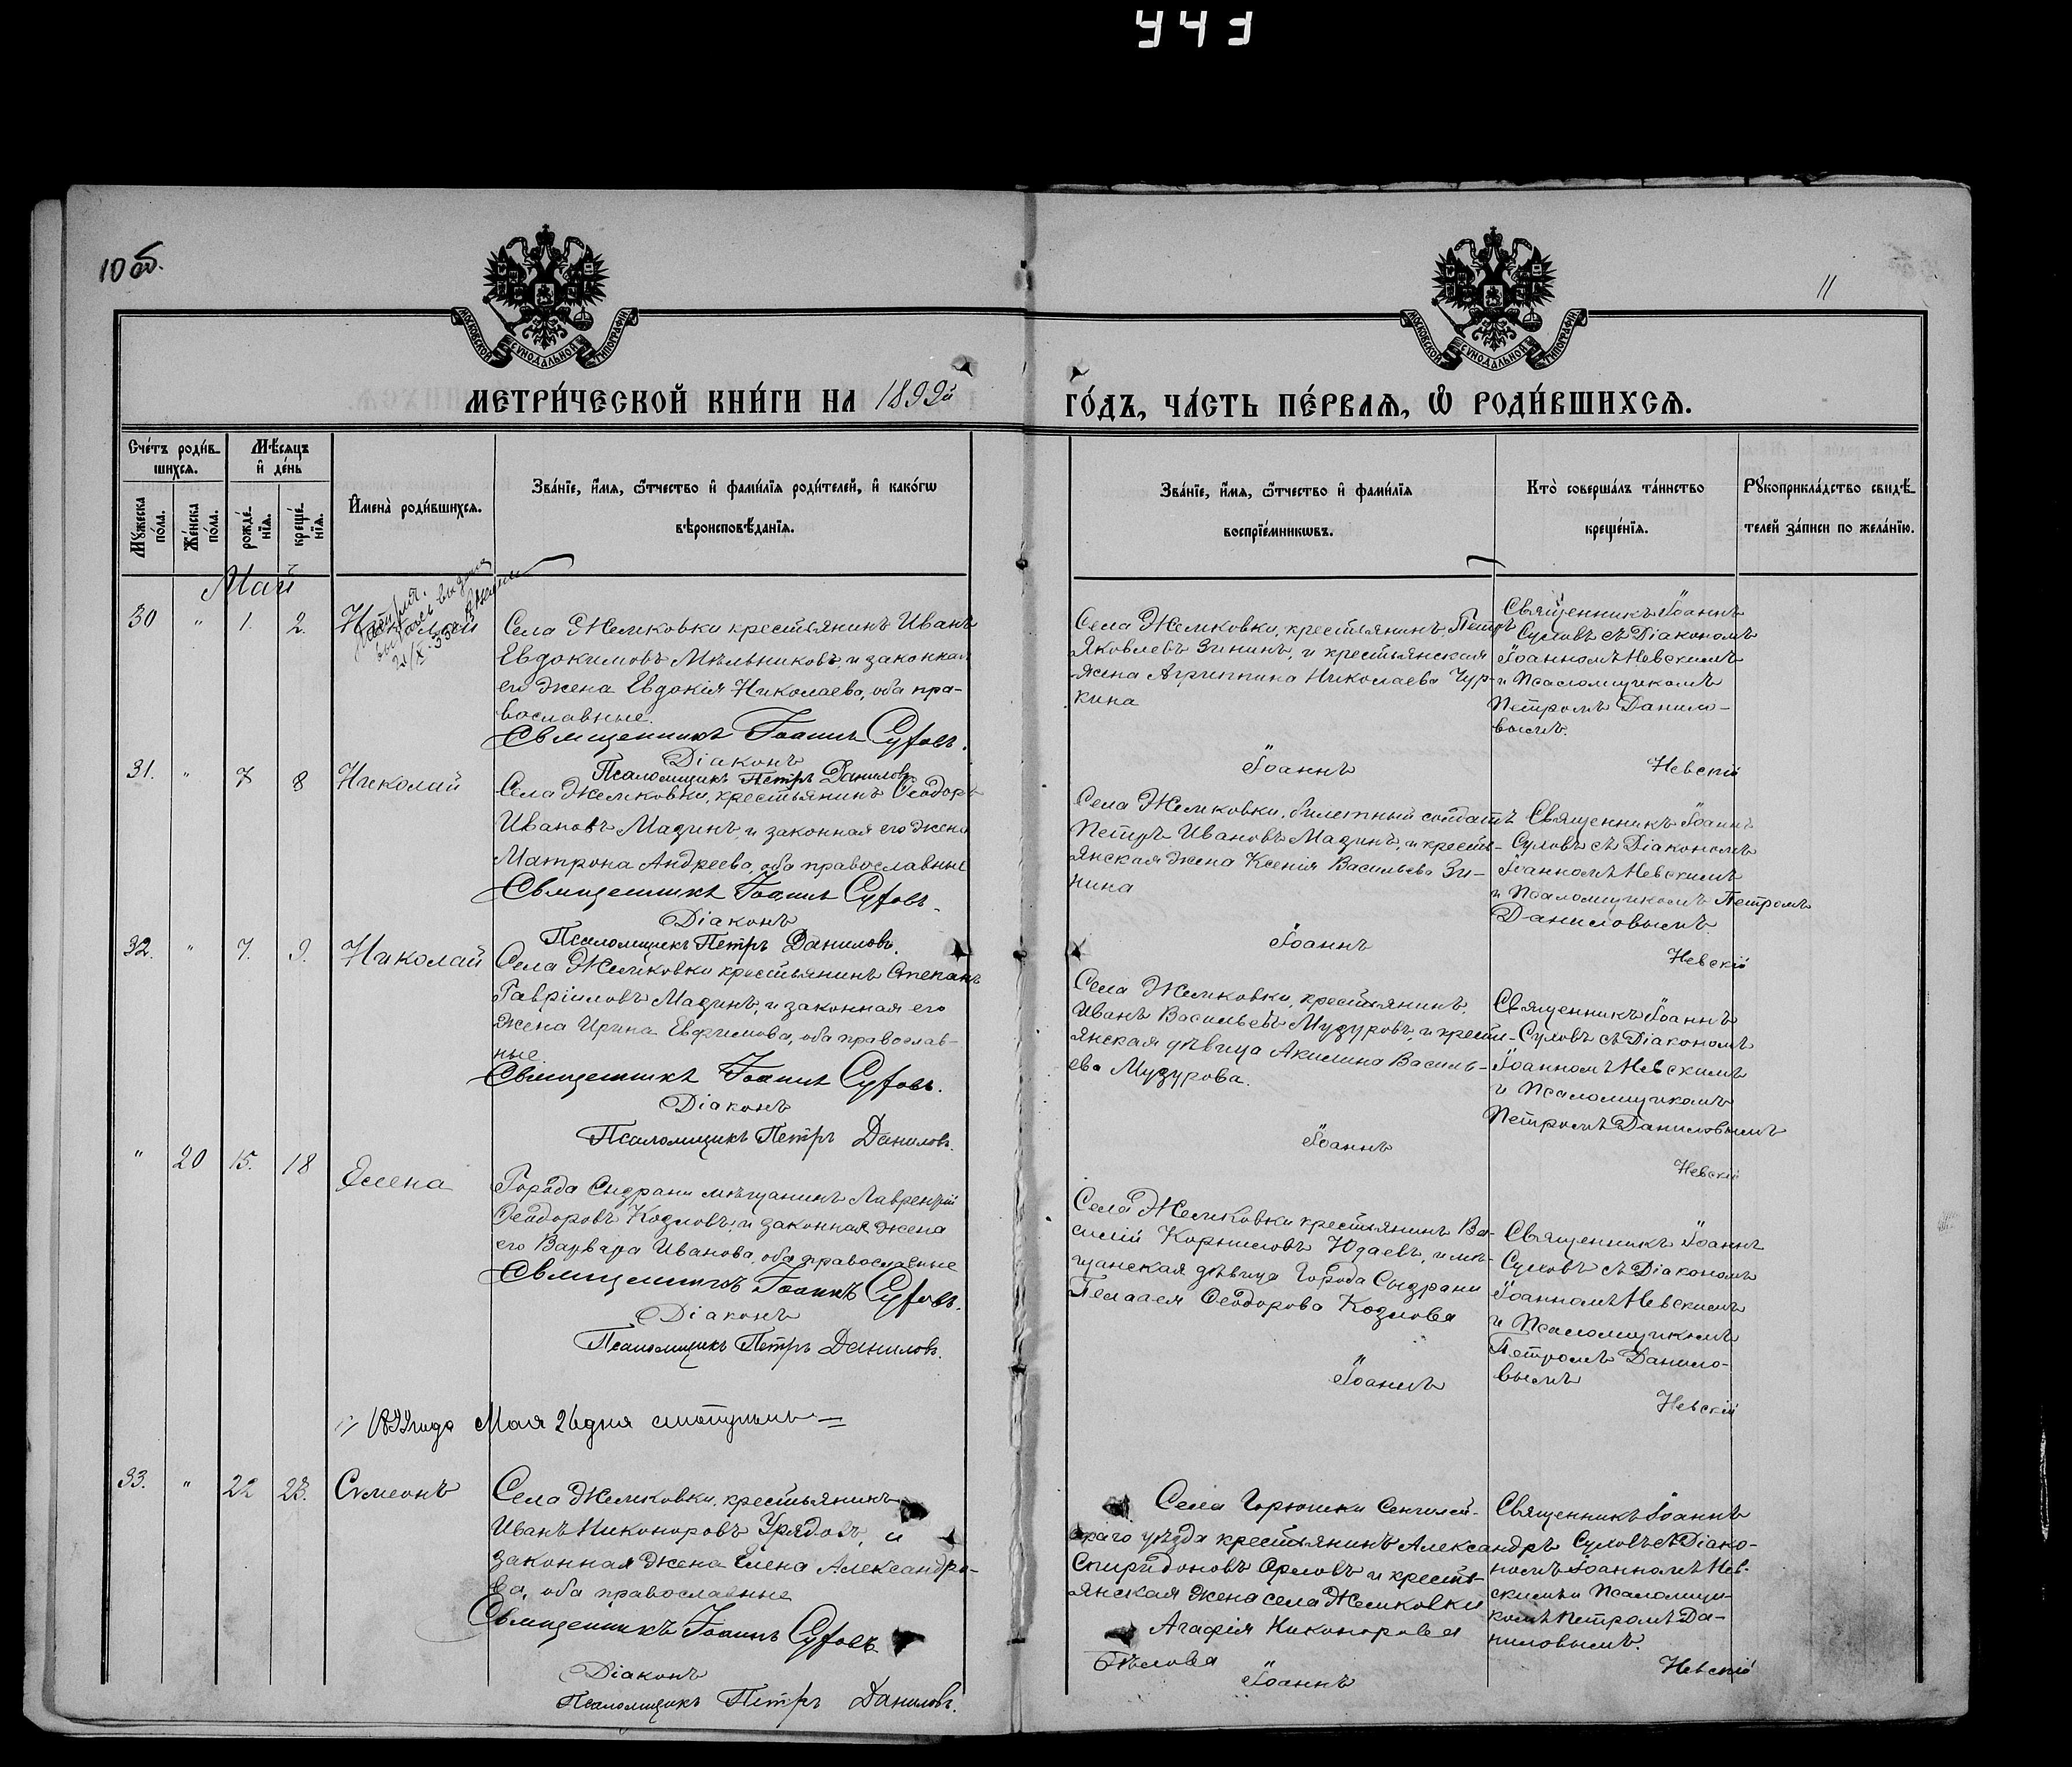 443
10 об.
11
МОСКОВСКОЙ СУНОДАЛЬНОЙ ТИПОГРАФІИ
МОСКОВСКОЙ СУНОДАЛЬНОЙ ТИПОГРАФІИ
МЕТРИ́ЧЕСКОЙ КНИ́ГИ НА 1899й
ГО́ДЪ, ЧА́СТЬ ПЕ́РВАѦ, Ѡ РОДИ́ВШИХСѦ.
Сче́тъ роди́вшихсѧ.
Мꙋ́жеска по́ла.
Же́нска по́ла.
Мѣ́сѧцъ и҆ де́нь
рожде́нїѧ.
креще́нїѧ.
И҆мена̀ роди́вшихсѧ.
Зва́нїе, и҆́мѧ, ѻ҆́тчество и҆ фами́лїѧ роди́телей, и҆ како́гѡ
вѣроисповѣ́данїѧ.
Зва́нїе, и҆́мѧ, ѻ҆́тчество и҆ фами́лїѧ
воспрїе́мникѡвъ.
Кто̀ соверша́лъ та́инство
креще́нїѧ.
Рꙋкоприкла́дство свидѣ́телей за́писи по жела́нїю.
Май
30 " 1. 2. Николай
Села Жемковки крестьянинъ Иванъ
Евдокимовъ Мѣльниковъ, и законная
его жена Евдокія Николаева, оба пра-
вославные.
Священникъ Іоаннъ Суховъ.
Діаконъ
Псаломщикъ Петръ Даниловъ
Села Жемковки, крестьянинъ Петръ
Яковлевъ Зининъ, и крестьянская
жена Агриппина Николаева Чур-
кина
Іоаннъ
Священникъ Іоаннъ
Суховъ съ Діакономъ
Іоанномъ Невскимъ
и Псаломщикомъ
Петромъ Данило-
вымъ.
Невскій
31. " 7 8 Николай
Села Жемковки, крестьянинъ Ѳеодоръ
Ивановъ Мадинъ, и законная его жена
Матрона Андреева, оба православные
Священникъ Іоаннъ Суховъ.
Діаконъ
Псаломщикъ Петръ Даниловъ.
Села Жемковки, билетный солдатъ
Петръ Ивановъ Мадинъ, и кресть-
янская жена Ксенія Васильева Зи-
нина
Іоаннъ
Священникъ Іоаннъ
Суховъ съ Діакономъ
Іоанномъ Невскимъ
и Псаломщикомъ Петромъ
Даниловымъ
Невскій
32. " 7. 9. Николай
Села Жемковки крестьянинъ Степанъ
Гавріиловъ Мадинъ, и законная его
жена Ирина Евфимова, оба православ-
ные.
Священникъ Іоаннъ Суховъ.
Діаконъ
Псаломщикъ Петръ Даниловъ.
Села Жемковки, крестьянинъ
Иванъ Васильевъ Музуровъ, и кресть-
янская дѣвица Акилина Василь-
ева Музурова.
Іоаннъ
Священникъ Іоаннъ
Суховъ съ Діакономъ
Іоанномъ Невскимъ
и Псаломщикомъ
Петромъ Даниловымъ
Невскій
" 20 15. 18 Елена
Города Сызрани мѣщанинъ Лаврентій
Ѳеодоровъ Козловъ, и законная жена
его Варвара Иванова, оба православные
Священникъ Іоаннъ Суховъ.
Діаконъ
Псаломщикъ Петръ Даниловъ.
Села Жемковки крестьянинъ Ва-
силій Корниловъ Юдаевъ, и мѣ-
щанская дѣвица Города Сызрани
Пелагея Ѳеодорова Козлова
Іоаннъ
Священникъ Іоаннъ
Суховъ съ Діакономъ
Іоанномъ Невскимъ
и Псаломщикомъ
Петромъ Данило-
вымъ
Невскій
1899 года Мая 26 дня
33. " 22 23. Симеонъ
Села Жемковки, крестьянинъ
Иванъ Никоноровъ Урядовъ, и
законная жена Елена Александро-
ва, оба православные
Священникъ Іоаннъ Суховъ.
Діаконъ
Псаломщикъ Петръ Даниловъ.
Села Горюшки Сенгилей-
скаго уѣзда крестьянинъ Александръ
Спиридоновъ Орловъ и кресть-
янская жена села Жемковки
Агафія Никонорова
Бѣлова
Іоаннъ
Священникъ Іоаннъ
Суховъ съ Діако-
номъ Іоанномъ Нев-
скимъ и Псаломщи-
комъ Петромъ Да-
ниловымъ.
Невскій